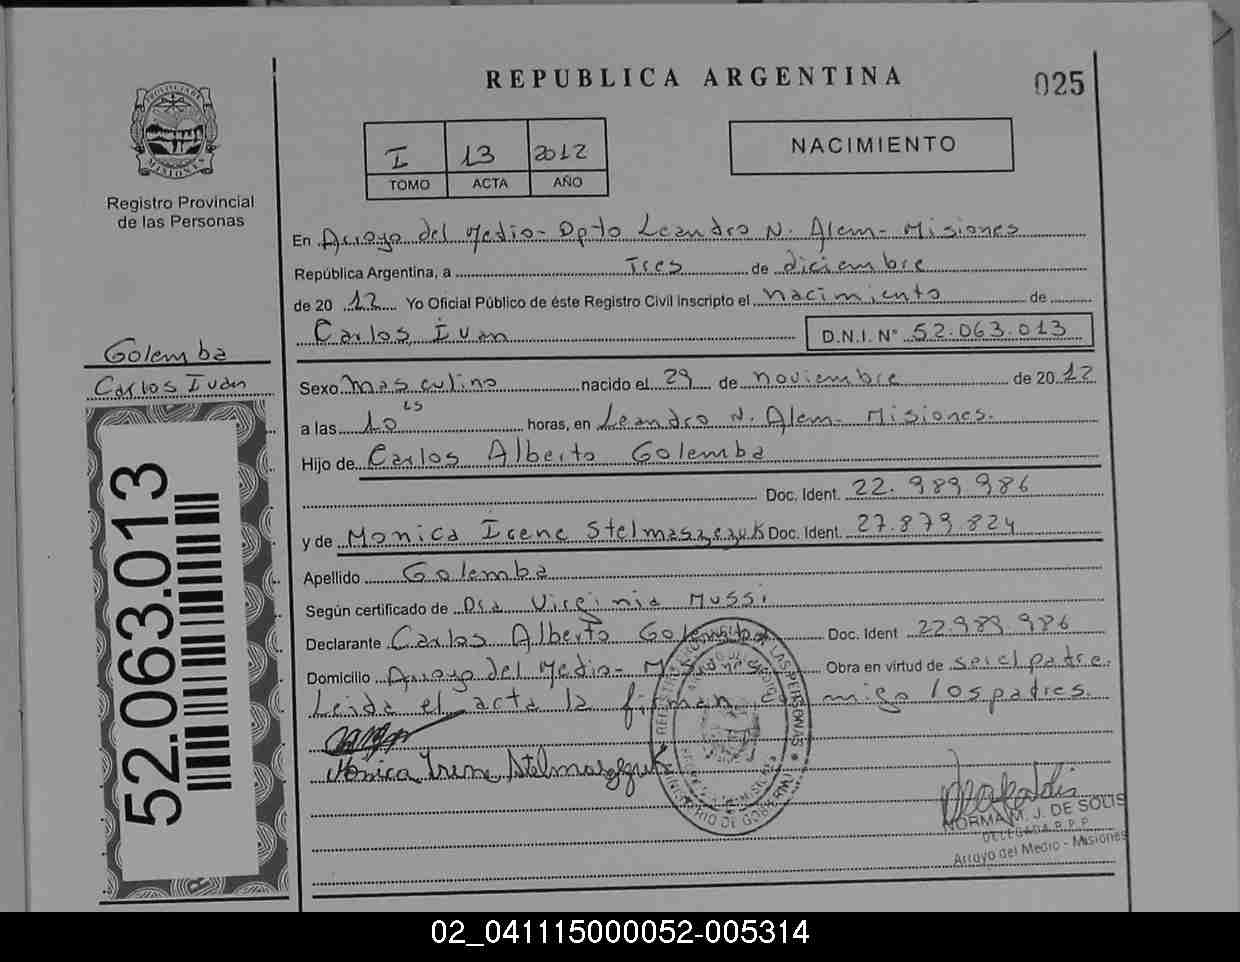 REPUBLICA ARGENTINA
025
PROVINCIA DE
MISIONES
Registro Provincial
de las Personas
I 13 2012
TOMO ACTA AÑO
NACIMIENTO
En Arroyo del Medio - Dpto Leandro N. Alem - Misiones
República Argentina, a Tres de diciembre
de 2012 Yo Oficial Público de éste Registro Civil inscripto el nacimiento de
Carlos Ivan D.N.I. N° 52.063.013
Golemba
Carlos Ivan
Sexo masculino nacido el 29 de noviembre de 2012
a las 10 horas, en Leandro N. Alem - Misiones.
Hijo de Carlos Alberto Golemba
Doc. Ident. 22.989.986
y de Monica Irene Stelmaszczuk Doc. Ident. 27.879.824
Apellido Golemba
Según certificado de Dra Virginia Mussi
Declarante Carlos Alberto Golemba Doc. Ident 22.989.986
Domicilio Arroyo del Medio - Obra en virtud de ser el padre.
Leida el acta la firman conmigo los padres.
Monica Irene Stelmaszczuk
52.063.013
NORMA M. J. DE SOLIS
DELEGADA R.P.P.
Arroyo del Medio - Misiones
02_041115000052-005314